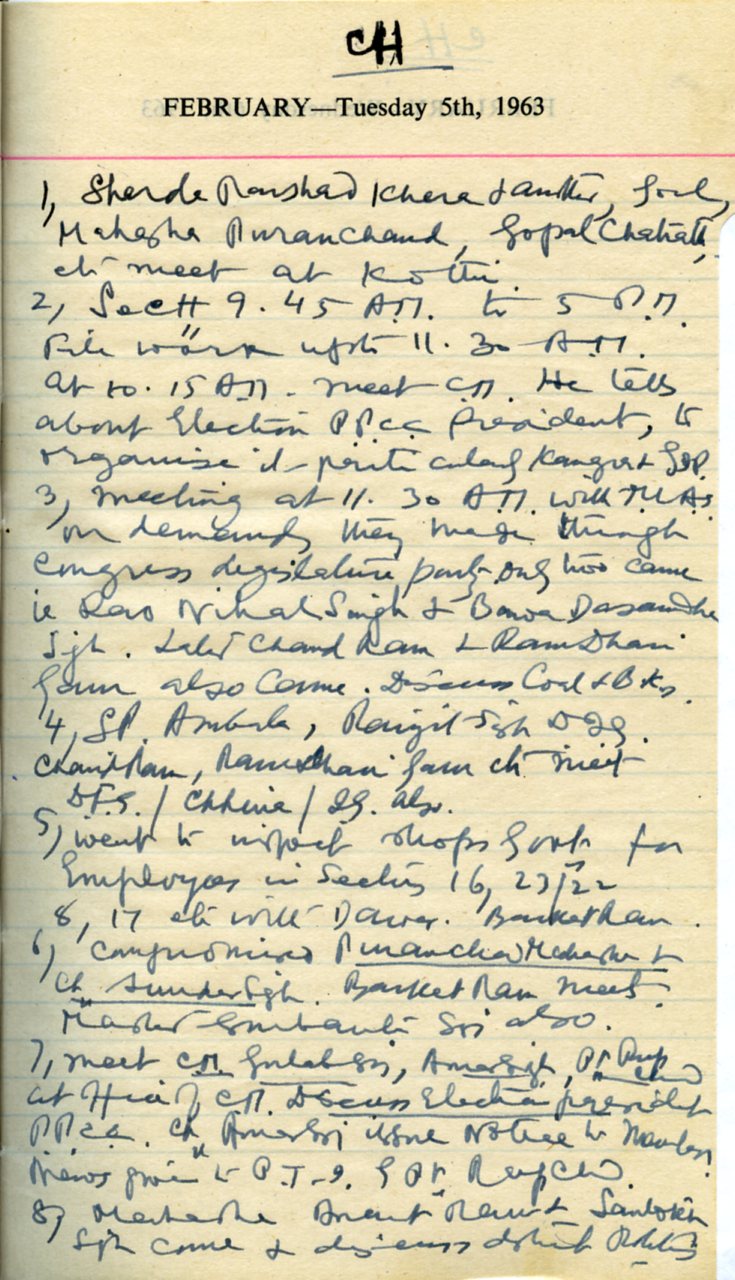 CH
FEBRUARY—Tuesday 5th, 1963
1, Sherda Parshad Khera & another,
Mahasha Puranchand, Gopal
etc meet at Kothi.
2, Sectt 9.45 A.M. to 5 P.M.
File work upto 11.30 A.M.
At 10.15 A.M. meet C.M. He tells
about Election PPCC President, to
organise it particularly Kangra &
3, Meeting at 11.30 A.M. with M.L.As
on demands they made through
Congress legislature party. Only two came
ie Rao Nihal Singh & Bawa
Sgh. Later Chand Ram & Ram Dhari
Gaur also came. Discuss Coal & B.Ks.
4, SP. Ambala, Ranjit Sgh DIG.
Chand Ram, Ramdhari Gaur etc meet
/ Chhina / IG. also.
5, went to inspect shops Govt for
Employees in Sectors 16, 23/22
8, 17 etc with Dawer. Barket Ram.
6, Compromised Puranchand Mahasha &
Ch Sunder Sgh. Barket Ram meet.
Master Gurbanta Sgh also.
7, meet C.M. Gulab Sgh, Amar Sgh, Pt Rup Chand
at H of C.M. Discuss Election president
PPCC. Ch Amar Sgh issue Notice to Members.
News given to P.T.I. & Pt Rup Chd.
8, Mahasha Ram & Santokh
Sgh come & discuss district Politics